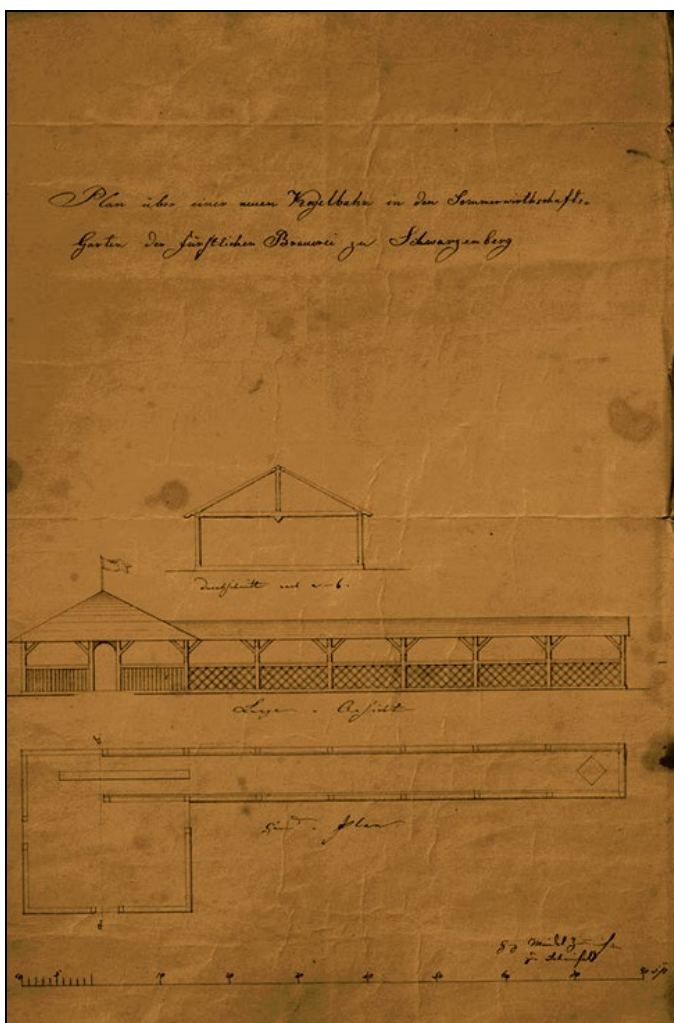 Plan über einer neuen Kegelbahn in den Sommerwirthschafts-
Garten der fürstlichen Brauerei zu Schwarzenberg
Durchschnitt nach a–b.
Ansicht
Grund - Plan
10 20 30 40 50 60 70 80